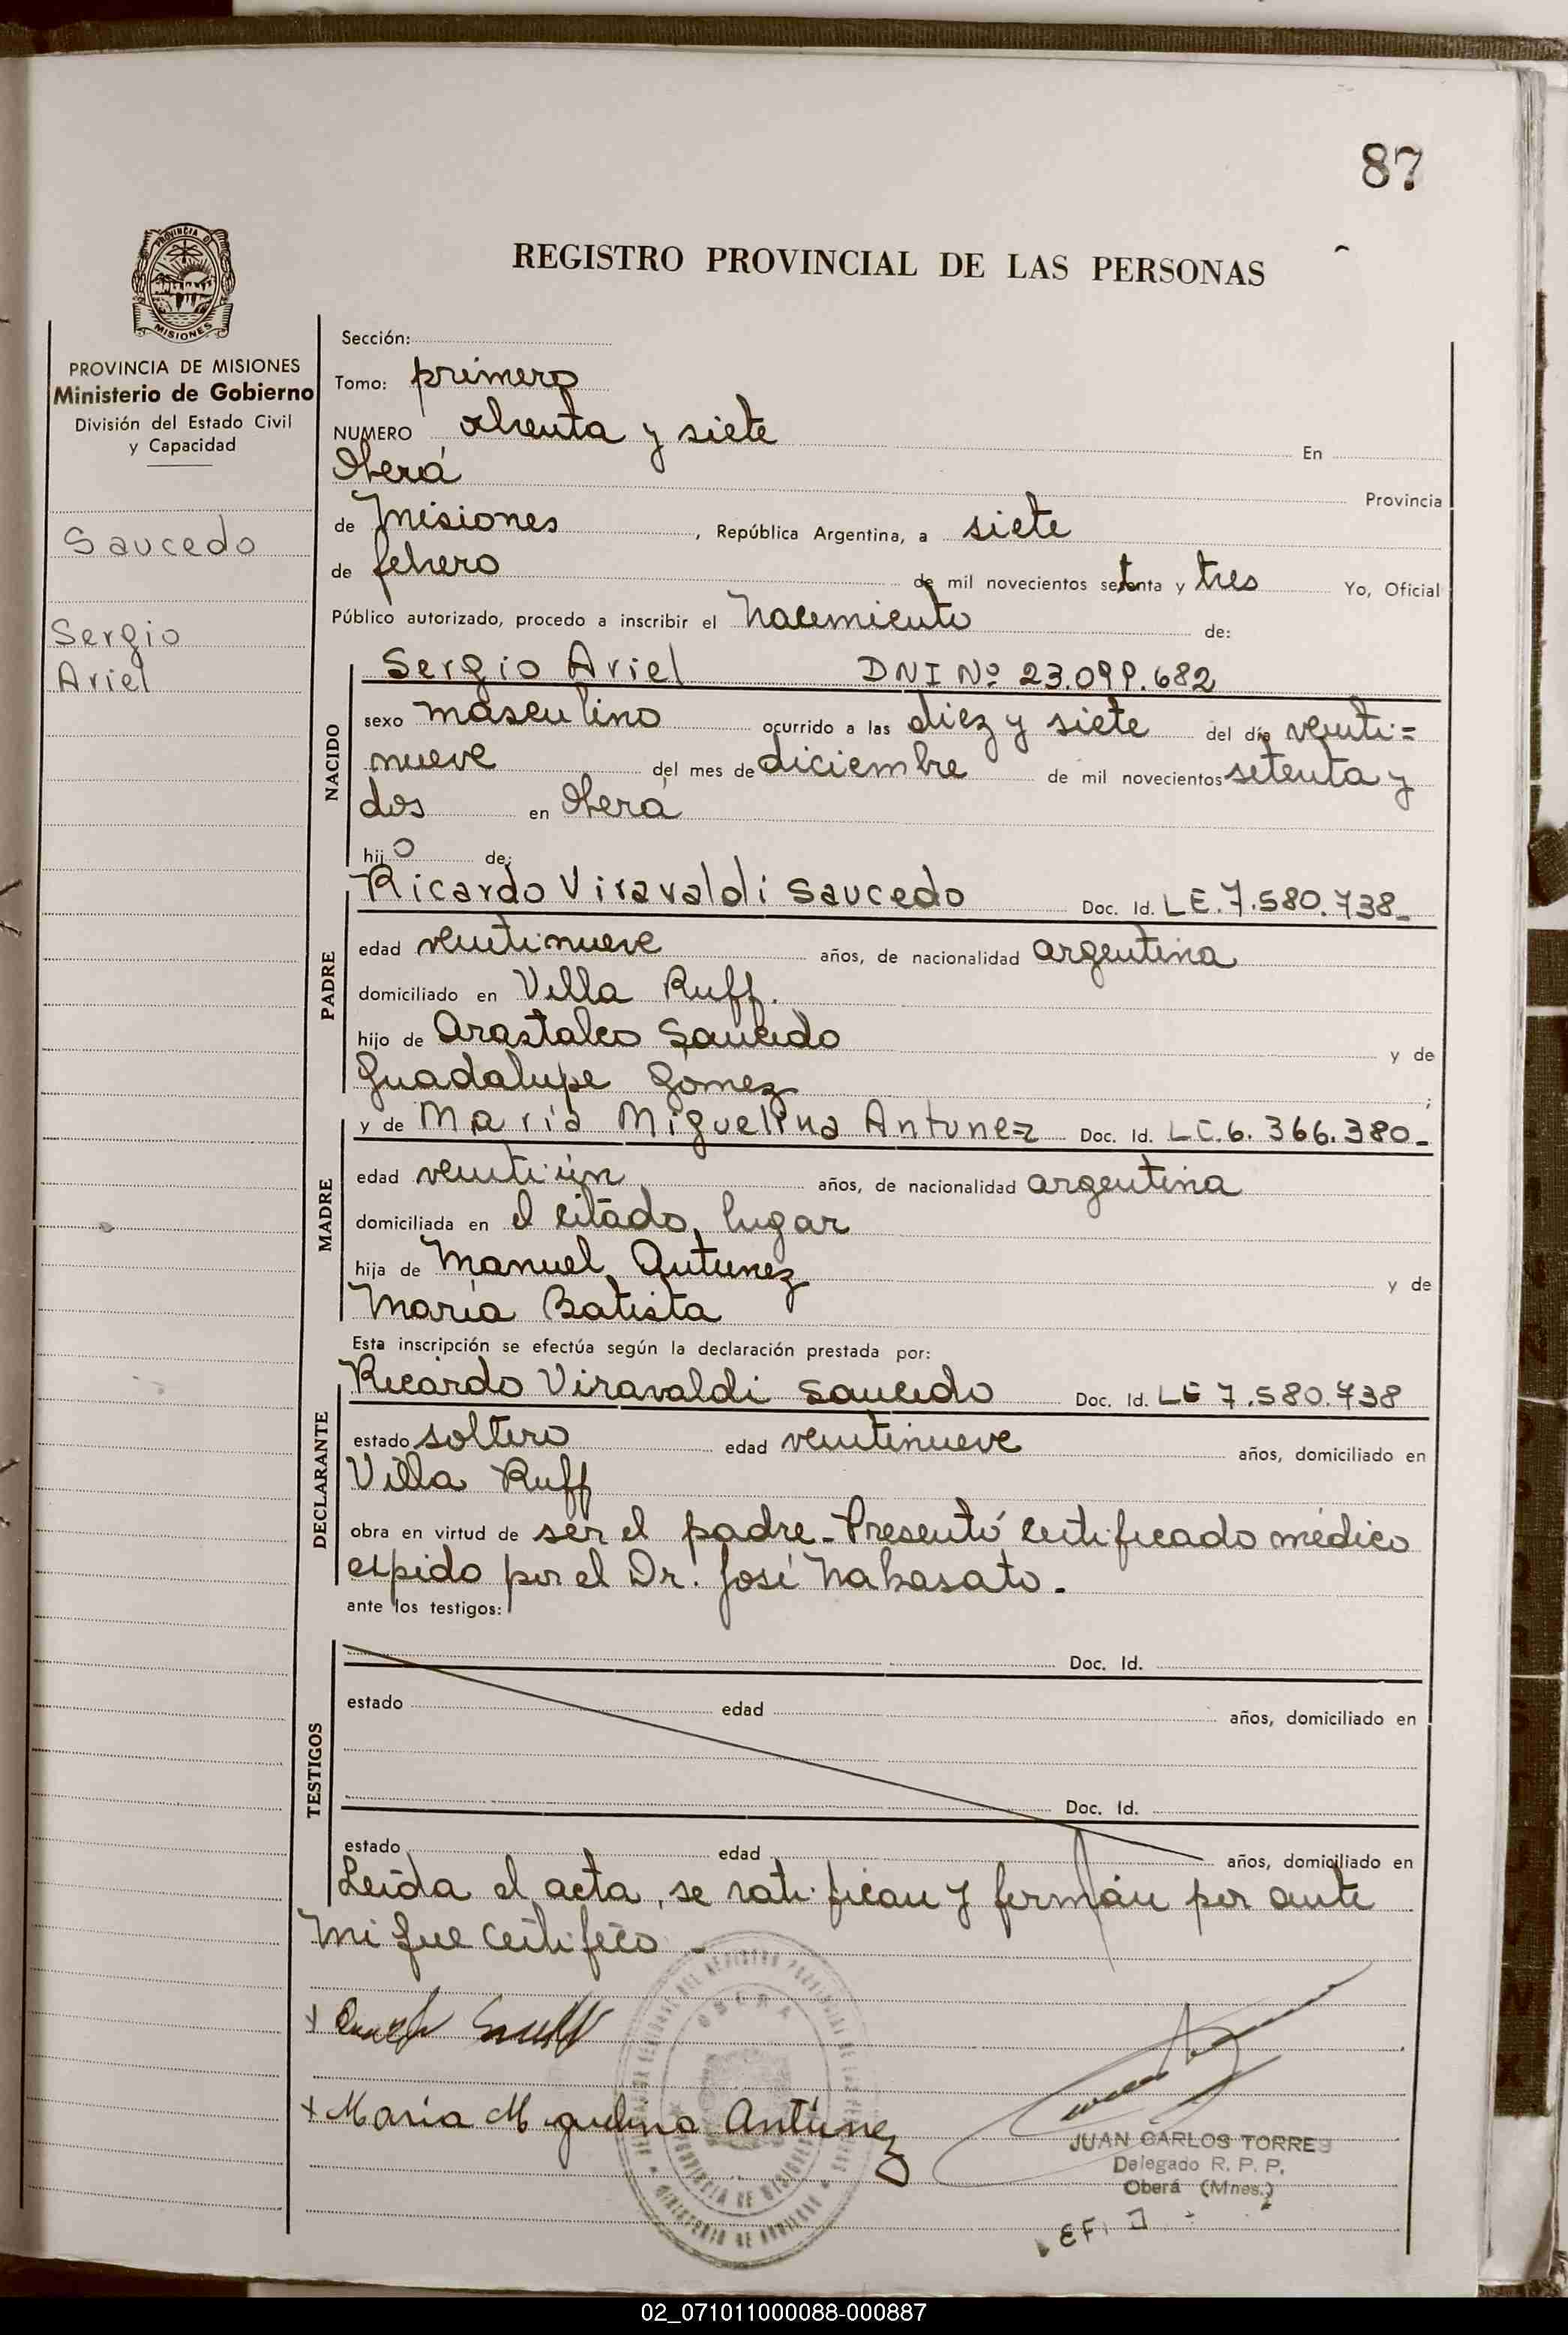 87
REGISTRO PROVINCIAL DE LAS PERSONAS
PROVINCIA DE MISIONES
Ministerio de Gobierno
División del Estado Civil
y Capacidad
Saucedo
Sergio
Ariel
Sección:
Tomo: primero
NUMERO ochenta y siete En
Oberá Provincia
de Misiones, República Argentina, a siete
de febrero de mil novecientos setenta y tres Yo, Oficial
Público autorizado, procedo a inscribir el Nacimiento de:
NACIDO
Sergio Ariel DNI Nº 23.099.682
sexo masculino ocurrido a las diez y siete del día veinti=
nueve del mes de diciembre de mil novecientos setenta y
dos en Oberá
hijo de:
PADRE
Ricardo Viravaldi Saucedo Doc. Id. LE.7.580.738-
edad veintinueve años, de nacionalidad argentina
domiciliado en Villa Ruff.
hijo de Arastaleo Saucedo y de
Guadalupe Gomez;
MADRE
y de María Miguelina Antunez Doc. Id. LC.6.366.380-
edad veintiún años, de nacionalidad argentina
domiciliada en el citado lugar
hija de Manuel Antunez y de
María Batista
Esta inscripción se efectúa según la declaración prestada por:
DECLARANTE
Ricardo Viravaldi Saucedo Doc. Id. LE 7.580.738
estado soltero edad veintinueve años, domiciliado en
Villa Ruff
obra en virtud de ser el padre-Presentó certificado médico
espido por el Dr. José Nakasato.
ante los testigos:
TESTIGOS
Doc. Id.
estado edad años, domiciliado en
Doc. Id.
estado edad años, domiciliado en
Leída el acta, se ratifican y firmán por ante
mi que certifico-
María Miguelina Antúnez
JUAN CARLOS TORRES
Delegado R. P. P.
Oberá (Mnes.)
02_071011000088-000887